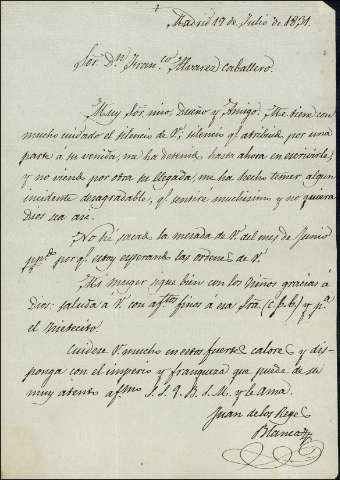 Madrid 19 de Julio de 1831.
Sor. Dn. Franco. Alvarez Caballero.
Muy Sor. mio, Dueño y Amigo: Me tiene con
mucho cuidado el silencio de V.; silencio q.e atribuido, por una
parte á su venida, me ha detenido hasta ahora en escribirle;
y no viendo por otra su llegada, me ha hecho temer algun
incidente desagradable, q.e sentiré muchisimo y no quiera
Dios sea asi.
No hé sacado la mesada de V. del mes de Junio
pp.do por q.e estoy esperando las ordenes de V.
Mi muger sigue bien con los Niños gracias á
Dios: saluda á V. con af.tos finos á esa Sra. (c.p.b.) y p.a
el Nietecito.
Cuidese V. mucho en estos fuertes calores y dis-
ponga con el imperio y franqueza que puede de su
muy atento af.mo S. S. Q. B. S. M. y le Ama
Juan de los Reyes
Blanca